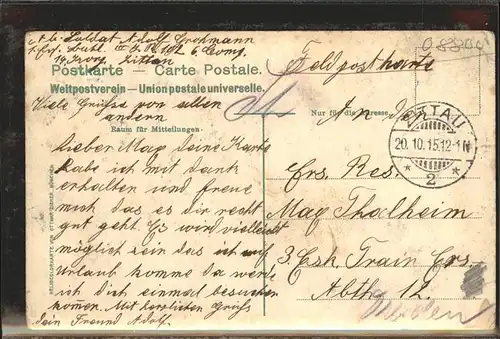 Soldat Adolf
6 Comp.
Zittau
08800
Postkarte — Carte Postale.
Feldpostkarte
Weltpostverein — Union postale universelle.
Viele Grüße von allen
andern
Nur für die Adresse.
An den
Raum für Mitteilungen.
ZITTAU
20.10.15.12-1N
* 2 *
lieber Max deine Karte
habe ich mit dank
erhalten und freue
mich das es dir recht
gut geht Es wird vielleicht
möglich sein das ich auf
Urlaub komme da werde
ich dich einmal besuchen
komen. Mit herzlichen Grüß
dein Freund Adolf.
Ers. Res.
Max Thalheim
3. Esk. Train Ers.
Abth. 12.